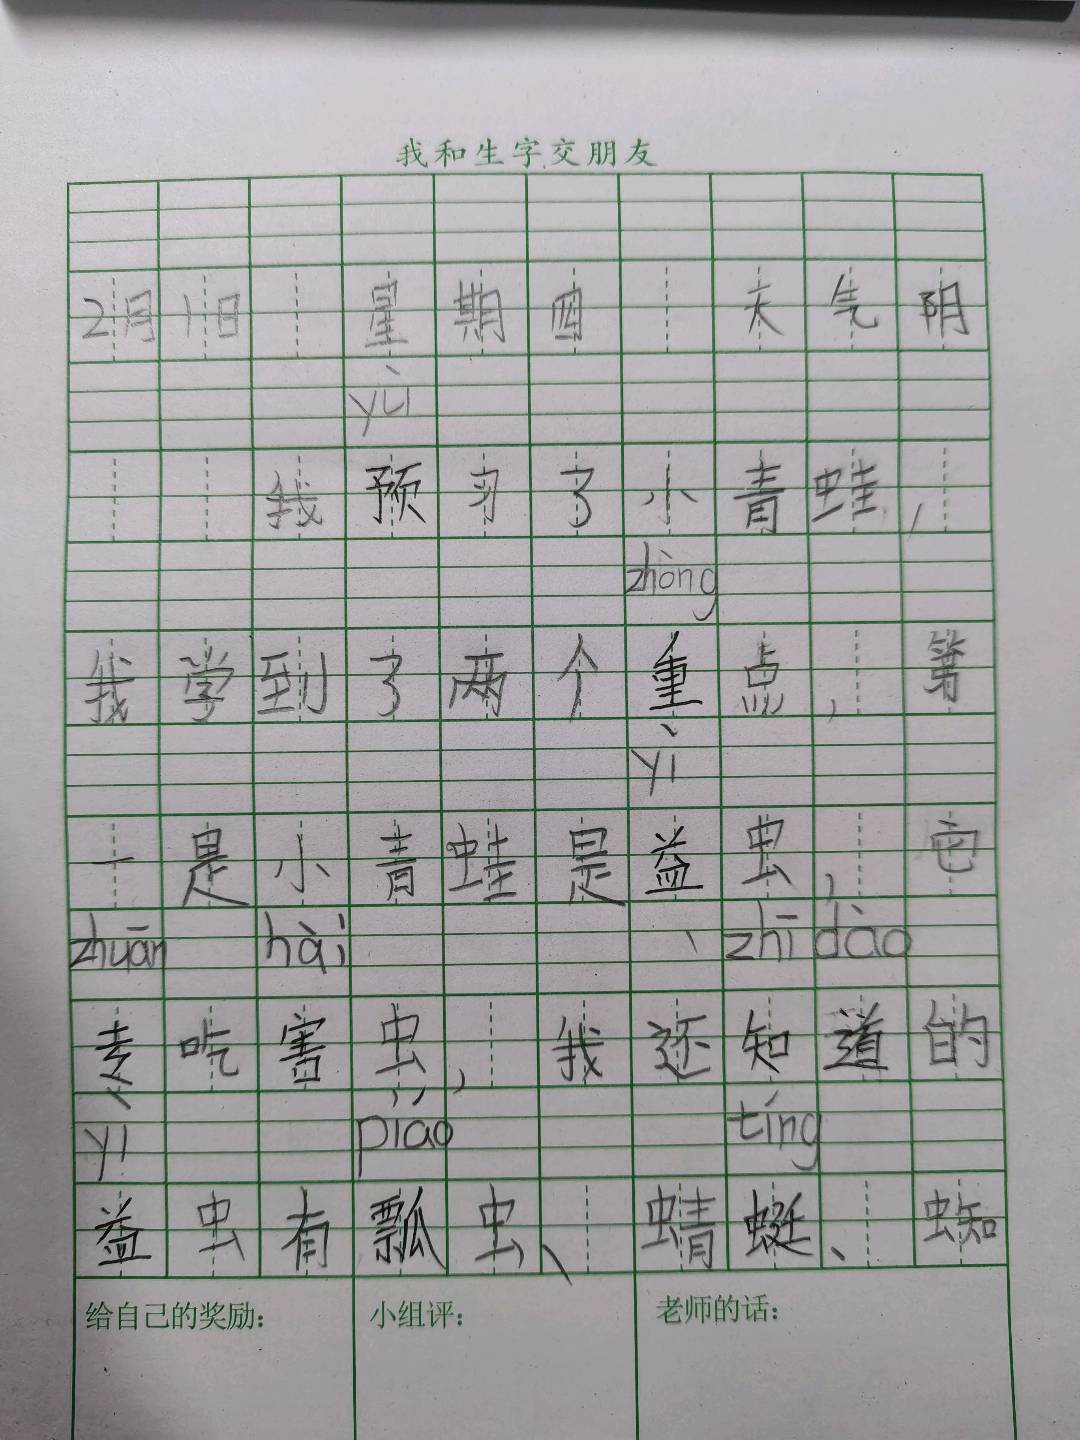 我和生字交朋友
2月1日 星期四 天气阴
yù
我预习了小青蛙，
zhòng
我学到了两个重点，第
yì
一是小青蛙是益虫，它
zhuān hài zhī dào
专吃害虫，我还知道的
yì piáo tíng
益虫有瓢虫、蜻蜓、蜘
给自己的奖励： 小组评： 老师的话：